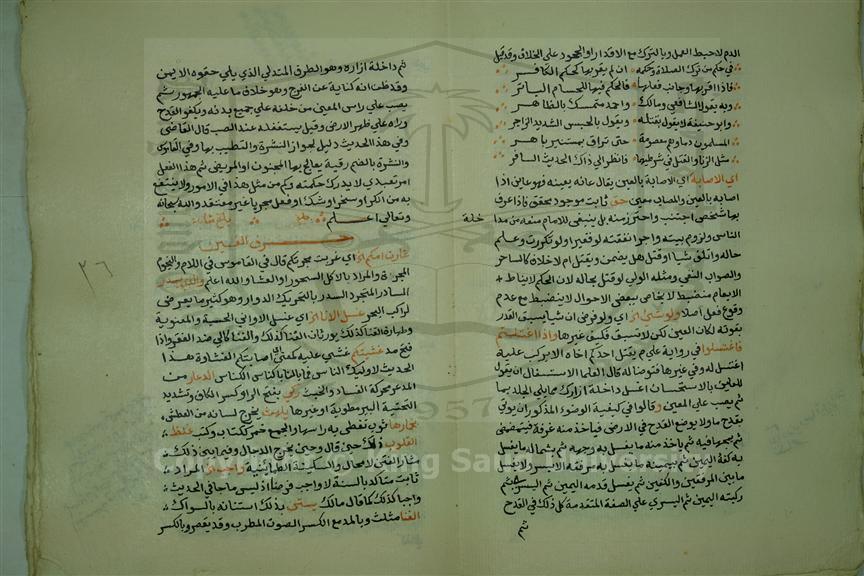 الدم لاحبط العمل وبالترك مع الاقدار او الجحود على الخلاف وقد قيل
في حكم من ترك الصلاة وحكمه ان لم يقر بها كحكم الكافر
فاذا اقر بها وجانب فعلها فالحكم فيها للحسام الباتر
وبه يقول الشافعي ومالك واحمد متمسك بالظاهر
وابو حنيفة لا يقول بقتله ويقول بالحبس الشديد الزاجر
المسلمون دماؤهم معصومة حتى تراق بمستنير باهر
مثل الزنا والقتل في شرطيهما فانظر الى ذاك الحديث السافر
اي الاصابة اي الاصابة بالعين يقال عانه بعينه فهو عاين اذا
اصابه بالعين والمصاب معين حق ثابت موجود محقق فاذا عرف
بها شخص اجتنب واحترز منه بل ينبغي للامام منعه من مدا
خلة
الناس ولزوم بيته واجرا نفقته لو فقيرا ولو تكررت وعلم
حاله واتلف شيا او قتل هل يضمن ويقتل ام لا خلاف كالساحر
والصواب النفي ومثله الولي لو قتل بحاله لان الحكم لا يناط
الا بعام منضبط لا بخاص ببعض الاحوال لا ينضبط مع عدم
وقوع فعل اصلا ولو شي الخ اي ولو فرض ان شيا يسبق القدر
بقوته لكان العين لكن لا تسبق فكيف غيرها واذا اغتسلتم
فاغتسلوا في رواية علي م يقتل احدكم اخاه الا يركب عليه
اغتسل له وفي غيرها فتوضا له قال العلما الاستغسال ان يقول
للعاين بالاستحسان اغسل داخلة ازارك مما يلي الجلد بما
ثم يصب على المعين وقالوا في كيفية الوضوء المذكور ان يوتي
بقدح ما ولا يوضع القدح في الارض فياخذ منه غرفة فيتمضمض
ثم يمجها فيه ثم ياخذ منه ما يغسل به وجهه ثم بشماله ما يغسل
به كفه اليمين ثم بيمينه ما يغسل به مرفقه الايسر ولا يغسل
ما بين المرفقين والكفين ثم يغسل قدمه اليمين ثم اليسرى ثم
ركبته اليمين ثم اليسري على الصفة المتقدمة كل ذلك في القدح
ثم
ثم داخلة ازاره وهو الطرق المتدلي الذي يلي حقوه الايمن
وقد ظن انه كناية عن الفرج وهو خلاف ما عليه الجمهور ثم
يصب على راس المعين من خلفه على جميع بدنه ويكفو القدح
وراه على ظهر الارض وقيل يستغفله عند الصب قال القاضي
وفي هذا الحديث دليل لجواز النشرة والتطبب بها وفي القاموس
والنشرة بالضم رقية يعالج بها المجنون او المريض ثم هذا الفعل
امر تعبدي لا يدرك حكمته وكم من مثل هذا في الامور ولا ينتفع
به من انكر او سخر او شك او فعل مجربا غير معتقد والله سبحانه
وتعالى اعلم
حرف الغين
غارت امكم الخ اي غربت مجرتكم قال في القاموس في اللام والنجوم
المجرة والمراد بالاكل السحور او العشا والله اعلم
السادر المتجرد السدر بالتحريك الدوار وهو كثير ما يعرض
لراكب البحر غسل الانا الخ اي غسل الاواني الحسية والمعنوية
وطهارة الفنا كذلك يورثان الغنا كذلك والغنا كالى ضد الفقر واذا
فتح مد غشيتكم غشي عليه كعني اي اصابتكم الغشاوة هذا
الحديث لاوليك الناس فما بالنا يا كناس الكناس الدعار من
المدعو محركة الفساد والخبث ركي بفتح الرا وكسر الكاف وتشديد
التحتية البير مطوية او غيرها يلهث يخرج لسانه من العطش
خمارها ثوب تغطى به راسها والجمع خمر ككتاب وكتب غلظ
القلوب ذلك حتى قال وحتى يخرج الدجال وحتى يبني ذلك
ثار الفتن لا محال والسكينة الطمانينة واجب الخ المراد
ثابت متاكد بالسنة لا واجب فرضا اذ ليس ما جا في الحديث
واجبا كذلك كما قال مالك يستن بذلك استنانه بالسواك
الغنا مثلث وبالمد مع الكسر الصوت المطرب وقد يقصر وبالكسر
٢٦